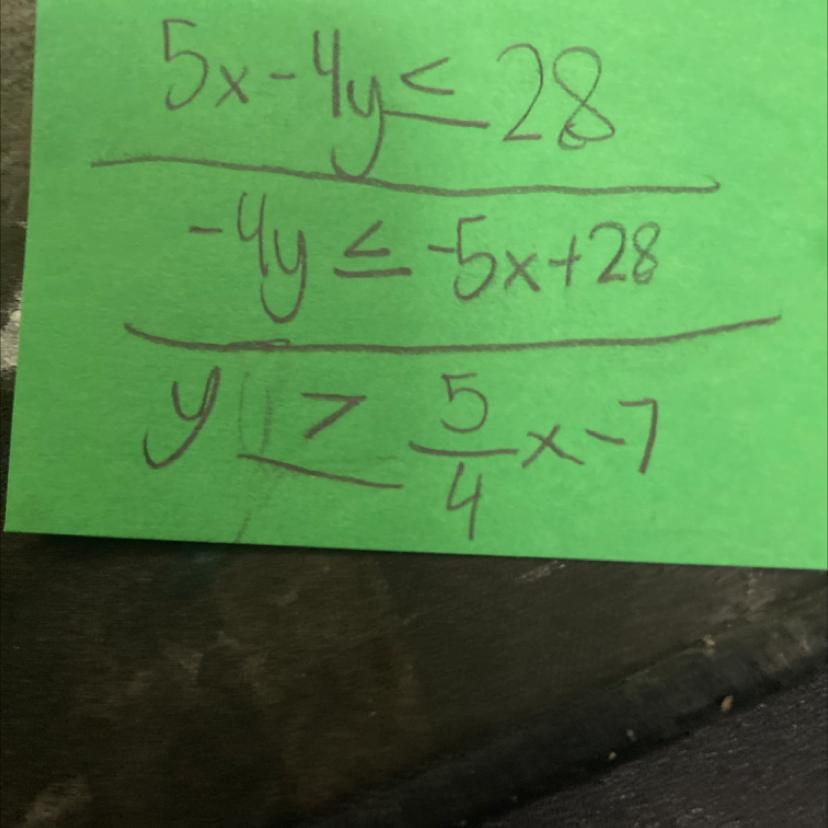 5x-4y≤28
-4y≤-5x+28
y≥5/4x-7